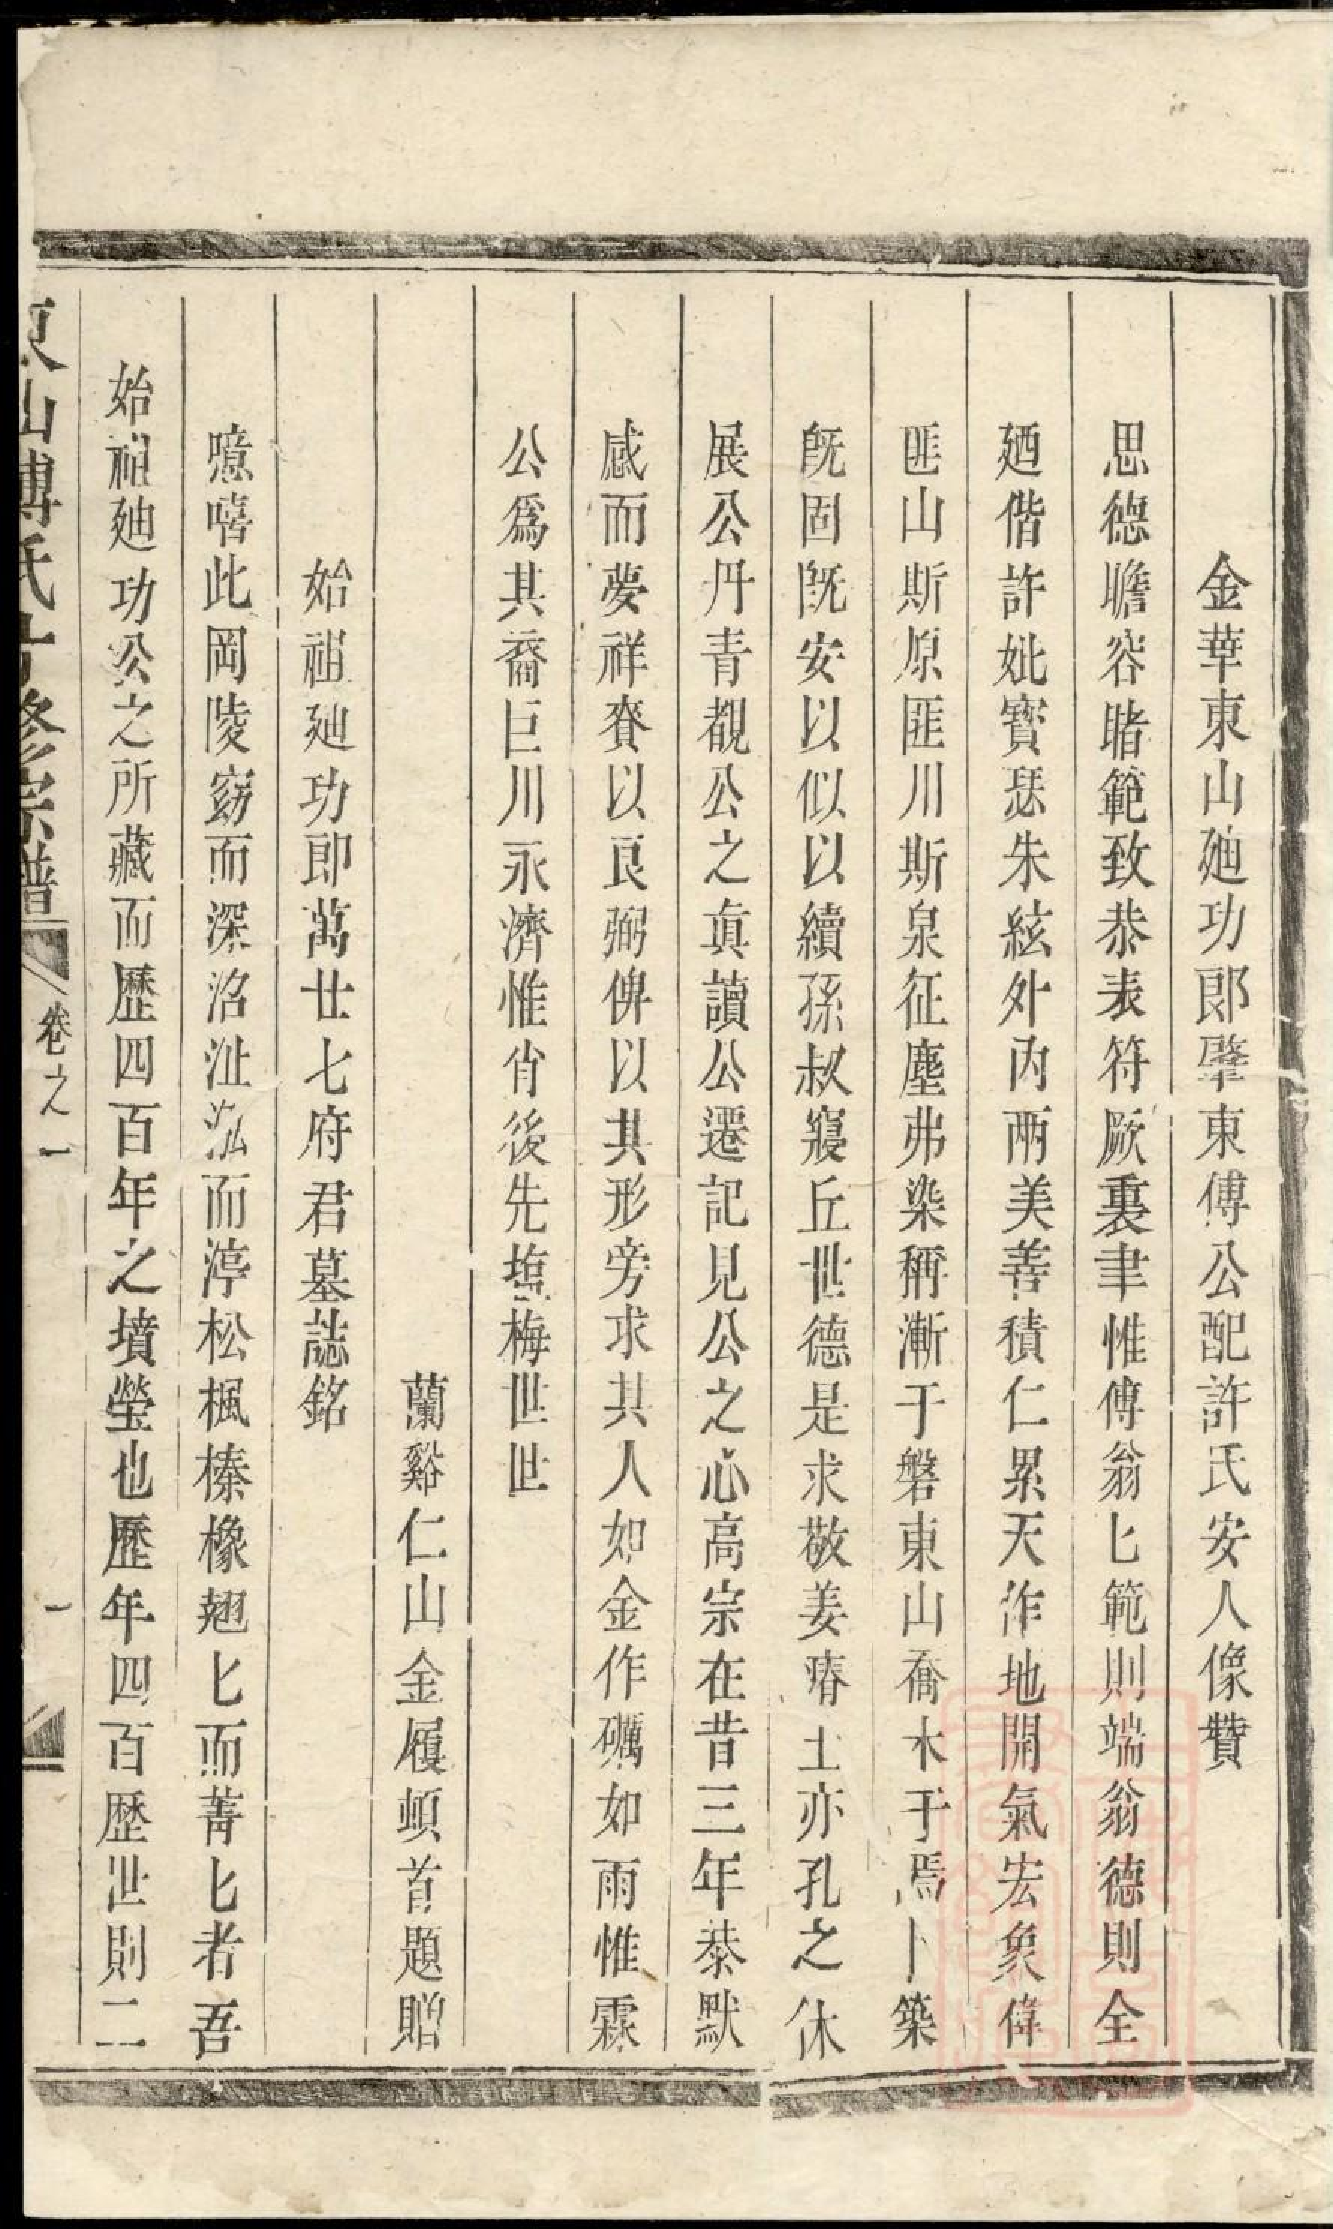 金華東山廸功郞肇東傅公配許氏安人像贊
思德瞻容睹範致恭表符厥裏聿惟傅翁匕範則端翁德則全
廼偕許妣寳瑟朱絃外內兩美善積仁累天作地開氣宏象偉
匪山斯原匪川斯泉征塵弗染稱漸于磐東山喬木于焉卜築
旣固旣安以似以續孫叔寢丘世德是求敬姜瘠土亦孔之休
展公丹青覩公之眞讀公遷記見公之心高宗在昔三年恭默
感而夢祥賚以良弼俾以其形旁求其人如金作礪如雨惟霖
公爲其裔巨川永濟惟肖後先塩梅世世
蘭谿仁山金履頓首題贈
始祖廸功郎萬廿七府君墓誌銘
噫嘻此岡陵窈而深沼沚泓而渟松楓榛橡翹匕而菁匕者吾
始祖廸功公之所藏而歷四百年之墳瑩也歷年四百歷世則二
東山傅氏十修宗譜
卷之一
一